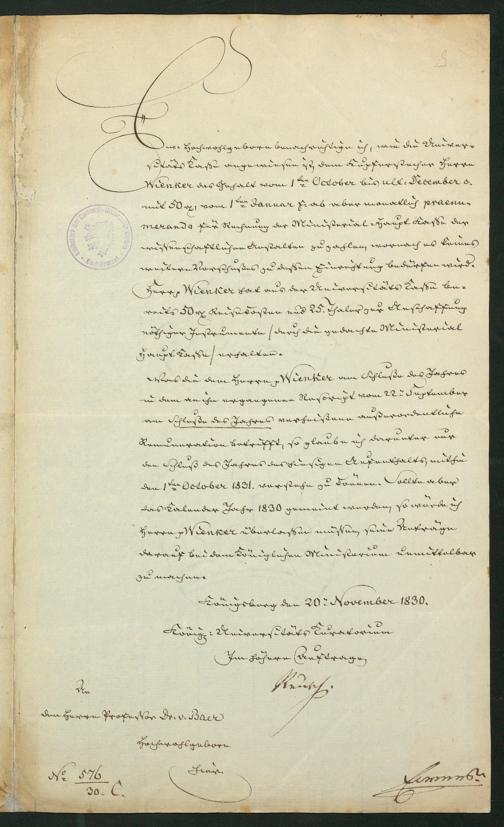 Euer Hochwohlgeboren benachrichtige ich, wie die Univer-
sitäts Kasse angewiesen ist, dem Kupferstecher Herrn
Wienker das Gehalt vom 1ten October bis ult. December c.
mit 50 rℓ, vom 1ten Januar f. ab aber monatlich praenu-
merando für Rechnung der Ministerial Haupt Kasse der
wissenschaftlichen Anstalten zu zahlen, wornach es keines
weitern Vorschußes zu dessen Einrichtung bedürfen wird.
Herr Wienker hat aus der Universitäts Kasse be-
reits 50 rℓ Reisekosten und 25 Thaler zur Anschaffung
nöthiger Instrumente /durch die gedachte Ministerial
Haupt Kasse/ erhalten.
Was die dem Herrn Wienker am Schluße des Jahres
in dem an ihn ergangenen Rescript vom 22ten September
am Schluße des Jahres verheißene außerordentliche
Remuneration betrifft, so glaube ich darunter nur
den Schluß des Jahres des hiesigen Aufenthalts, mithin
den 1ten October 1831. verstehn zu können. Sollte aber
das Kalender Jahr 1830 gemeint werden, so würde ich
Herrn Wienker überlassen müssen, seine Anträge
darauf bei dem Königlichen Ministerium unmittelbar
zu machen.
Königsberg den 20ten November 1830.
Königl: Universitäts Kuratorium
Im höhern Auftrage
Reusch.
An
den Herrn Professor Dr. v. Baer
Hochwohlgeboren
hier
No 576
30. C.